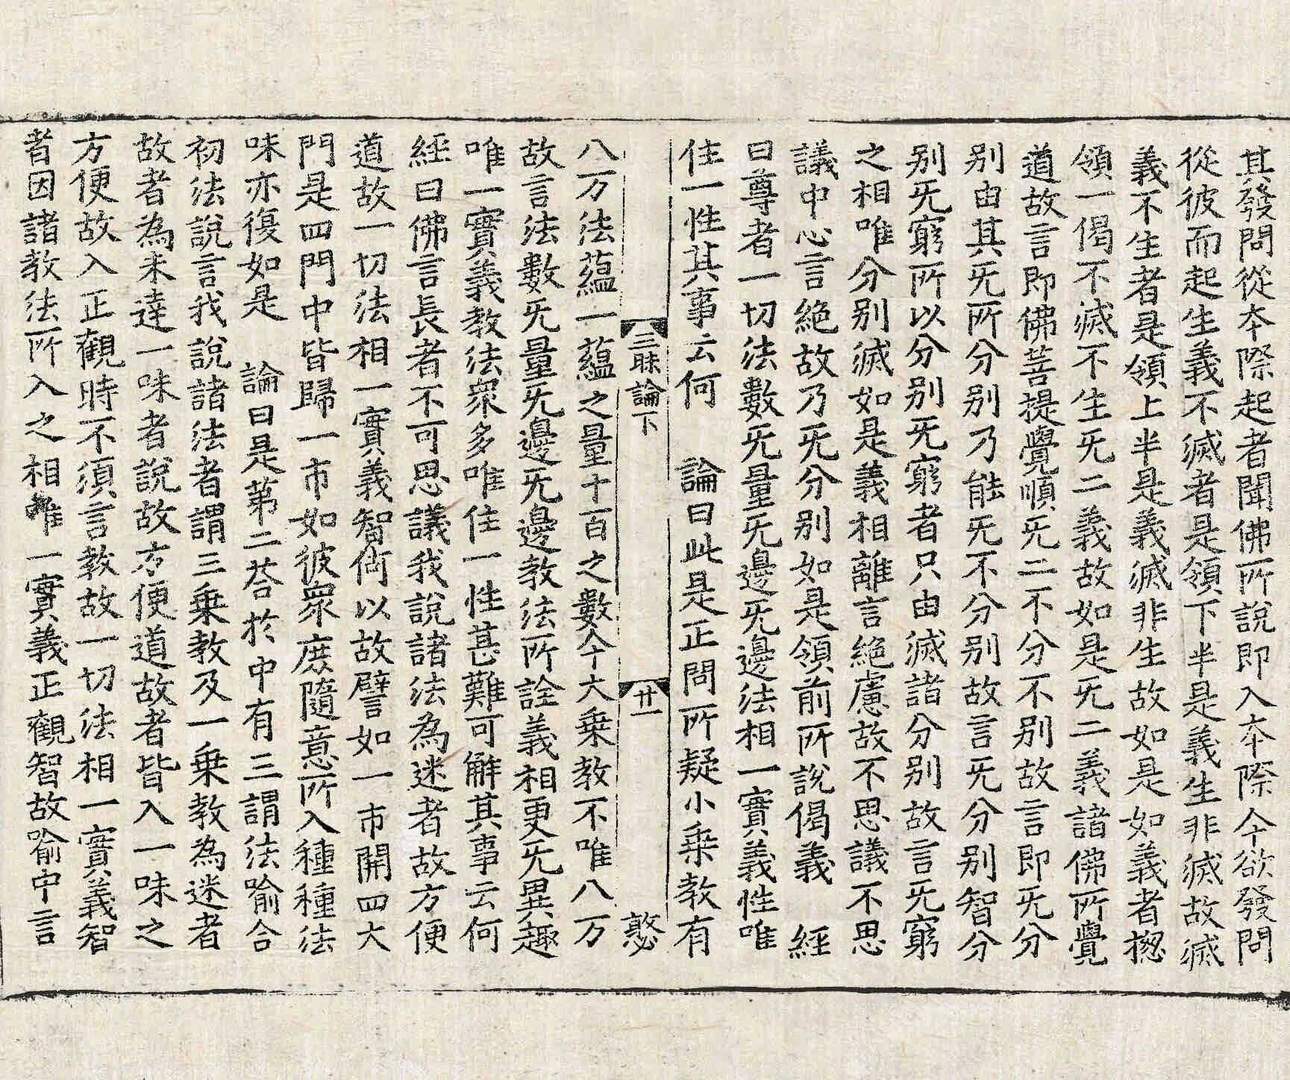 其發問從本際起者聞佛所說即入本際今欲發問
從彼而起生義不滅者是領下半是義生非滅故滅
義不生者是領上半是義滅非生故如是如義者揔
領一偈不滅不生旡二義故如是旡二義諸佛所覺
道故言即佛菩提覺順旡二不分不別故言即旡分
別由其旡所分別乃能旡不分別故言旡分別智分
別旡窮所以分別旡窮者只由滅諸分別故言旡窮
之相唯分別滅如是義相離言絶慮故不思議不思
議中心言絶故乃旡分別如是領前所說偈義 經
曰尊者一切法數旡量旡邊旡邊法相一實義性唯
住一性其事云何 論曰此是正問所疑小乗教有
三昧論下 廿一 憨
八万法蘊一蘊之量十百之數今大乗教不唯八万
故言法數旡量旡邊旡邊教法所詮義相更旡異趣
唯一實義教法衆多唯住一性甚難可解其事云何
經曰佛言長者不可思議我說諸法為迷者故方便
道故一切法相一實義智何以故譬如一市開四大
門是四門中皆歸一市如彼衆庶隨意所入種種法
味亦復如是 論曰是第二荅於中有三謂法喻合
初法說言我說諸法者謂三乗教及一乗教為迷者
故者為未達一味者說故方便道故者皆入一味之
方便故入正觀時不須言教故一切法相一實義智
者因諸教法所入之相唯一實義正觀智故喻中言